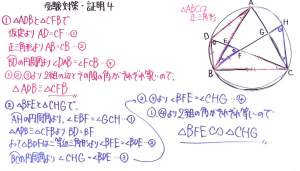 受験対策・証明4
① △ADBと△CFBで
仮定より AD=CF …①
正三角形より AB=CB …②
BDの円周角より ∠DAB=∠FCB …③
①,②,③より2組の辺とその間の角がそれぞれ等しいので、
△ADB≡△CFB
② △BFEと△CHGで、
AHの円周角より、∠EBF=∠GCH …①
△ADB≡△CFBより BD=BF
よって△BDFは二等辺三角形より ∠BFE=∠BDE …②
BCの円周角より ∠CHG=∠BDE …③
②,③より ∠BFE=∠CHG …④
①,④より2組の角がそれぞれ等しいので、
△BFE∽△CHG
△ABCは
正三角形
A
H
D
G
E
F
B
C